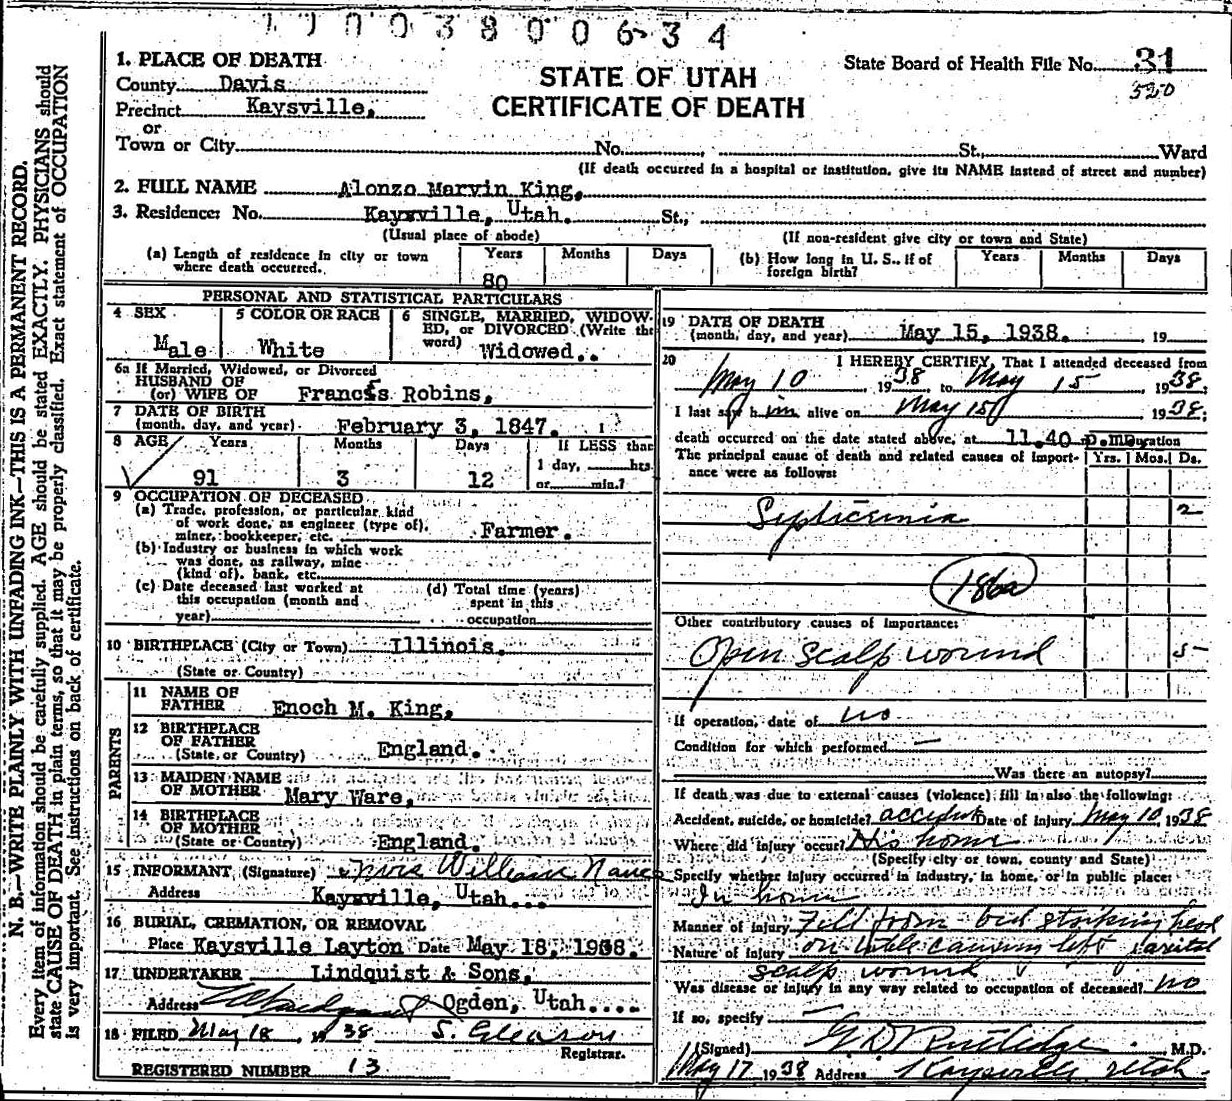 N. B.—WRITE PLAINLY WITH UNFADING INK—THIS IS A PERMANENT RECORD.
Every item of information should be carefully supplied. AGE should be stated EXACTLY. PHYSICIANS should
state CAUSE OF DEATH in plain terms, so that it may be properly classified. Exact statement of OCCUPATION
is very important. See instructions on back of certificate.
1. PLACE OF DEATH
County Davis
Precinct Kaysville,
or
Town or City No. St., Ward
STATE OF UTAH
CERTIFICATE OF DEATH
State Board of Health File No. 31
520
(If death occurred in a hospital or institution, give its NAME instead of street and number)
2. FULL NAME Alonzo Marvin King,
3. Residence: No. Kaysville, Utah. St.,
(Usual place of abode) (If non-resident give city or town and State)
(a) Length of residence in city or town where death occurred. Years 80 Months Days
(b) How long in U. S., if of foreign birth? Years Months Days
PERSONAL AND STATISTICAL PARTICULARS
4 SEX Male
5 COLOR OR RACE White
6 SINGLE, MARRIED, WIDOWED, or DIVORCED (Write the word) Widowed..
6a If Married, Widowed, or Divorced
HUSBAND OF
(or) WIFE OF Francis Robins,
7 DATE OF BIRTH
(month, day, and year) February 3, 1847. 1
8 AGE Years 91 Months 3 Days 12 If LESS than 1 day, hrs. or min.?
9 OCCUPATION OF DECEASED
(a) Trade, profession, or particular kind
of work done, as engineer (type of),
miner, bookkeeper, etc. Farmer.
(b) Industry or business in which work
was done, as railway, mine
(kind of), bank, etc.
(c) Date deceased last worked at
this occupation (month and
year)
(d) Total time (years)
spent in this
occupation
10 BIRTHPLACE (City or Town) Illinois.
(State or Country)
PARENTS
11 NAME OF
FATHER Enoch M. King,
12 BIRTHPLACE
OF FATHER
(State or Country) England.
13 MAIDEN NAME
OF MOTHER Mary Ware,
14 BIRTHPLACE
OF MOTHER
(State or Country) England.
15 INFORMANT (Signature) Mrs William
Address Kaysville, Utah...
16 BURIAL, CREMATION, OR REMOVAL
Place Kaysville Layton Date May 18, 1938.
17 UNDERTAKER Lindquist & Sons,
Address Ogden, Utah....
18 FILED May 18, 1938 S. Gleason
Registrar.
REGISTERED NUMBER 13
19 DATE OF DEATH
(month, day, and year) May 15, 1938. 19
20 I HEREBY CERTIFY, That I attended deceased from
May 10 1938 to May 15 1938
I last saw him alive on May 15 1938;
death occurred on the date stated above, at 11.40 p.m. Duration
The principal cause of death and related causes of importance were as follows: Yrs. Mos. Ds.
Septicemia 2
186a
Other contributory causes of importance:
Open scalp wound 5
If operation, date of no
Condition for which performed —
Was there an autopsy?
If death was due to external causes (violence) fill in also the following:
Accident, suicide, or homicide? accident Date of injury May 10, 1938
Where did injury occur? His home
(Specify city or town, county and State)
Specify whether injury occurred in industry, in home, or in public place:
In home
Manner of injury Fell from bed striking head
Nature of injury on table causing left parietal
scalp wound
Was disease or injury in any way related to occupation of deceased? no
If so, specify —
(Signed) G D Rutledge M.D.
May 17 1938 Address Kaysville Utah